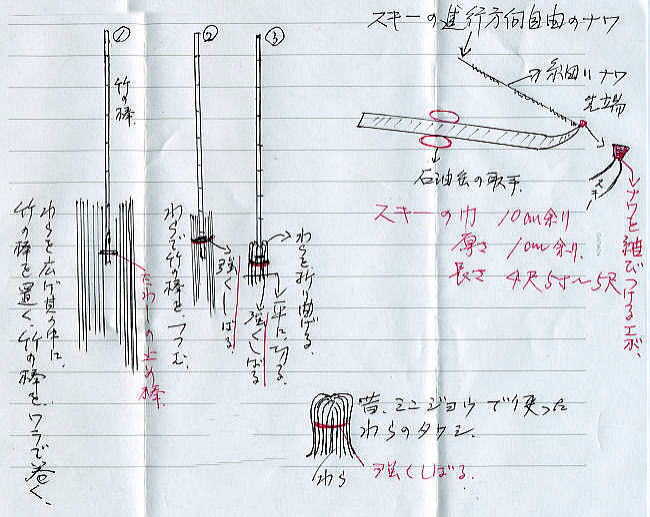 スキーの進行方向自由のナワ
細いナワ
先端
石油缶の取手
スキー
ナワを結びつけるエボ、
スキーの巾 10cm余り
厚さ 1cm余り、
長さ 4尺5寸〜5尺
①
竹の棒
②
③
わらを広げ其の中に、
竹の棒を置く、竹の棒を、ワラで巻く、
たわしの止め棒、
わらで竹の棒を、つつむ、
強くしばる、
わらを折り曲げる、
平に切る、
強くしばる
昔、ミニジョウで使った
わらのタワシ、
わら
強くしばる、